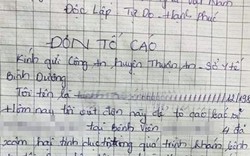 Độc Lập Tự Do Hạnh Phúc
ĐƠN TỐ CÁO
Kính gửi Công an huyện Thuận an - Sở Y tế
Bình Dương
Tôi tên là
Hôm nay tôi viết đơn này để tố cáo bác sĩ
tại bệnh viện 4 đã
xâm hại tình dục trong quá trình khám bệnh